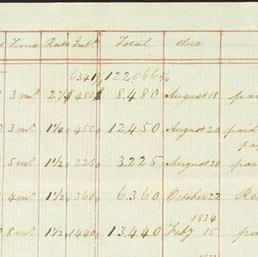 Time Rate Int. Total due
6341 122,066
3 m. 2½ 480 8.480 August 18 paid
3 m. 1¼ 450 12.450 August 20 paid
5 m. 1½ 225 3.225 August 30 paid
4 m. 1½ 360 6.360 October 22
1834
8 m. 1½ 1440 13.440 Feby 15